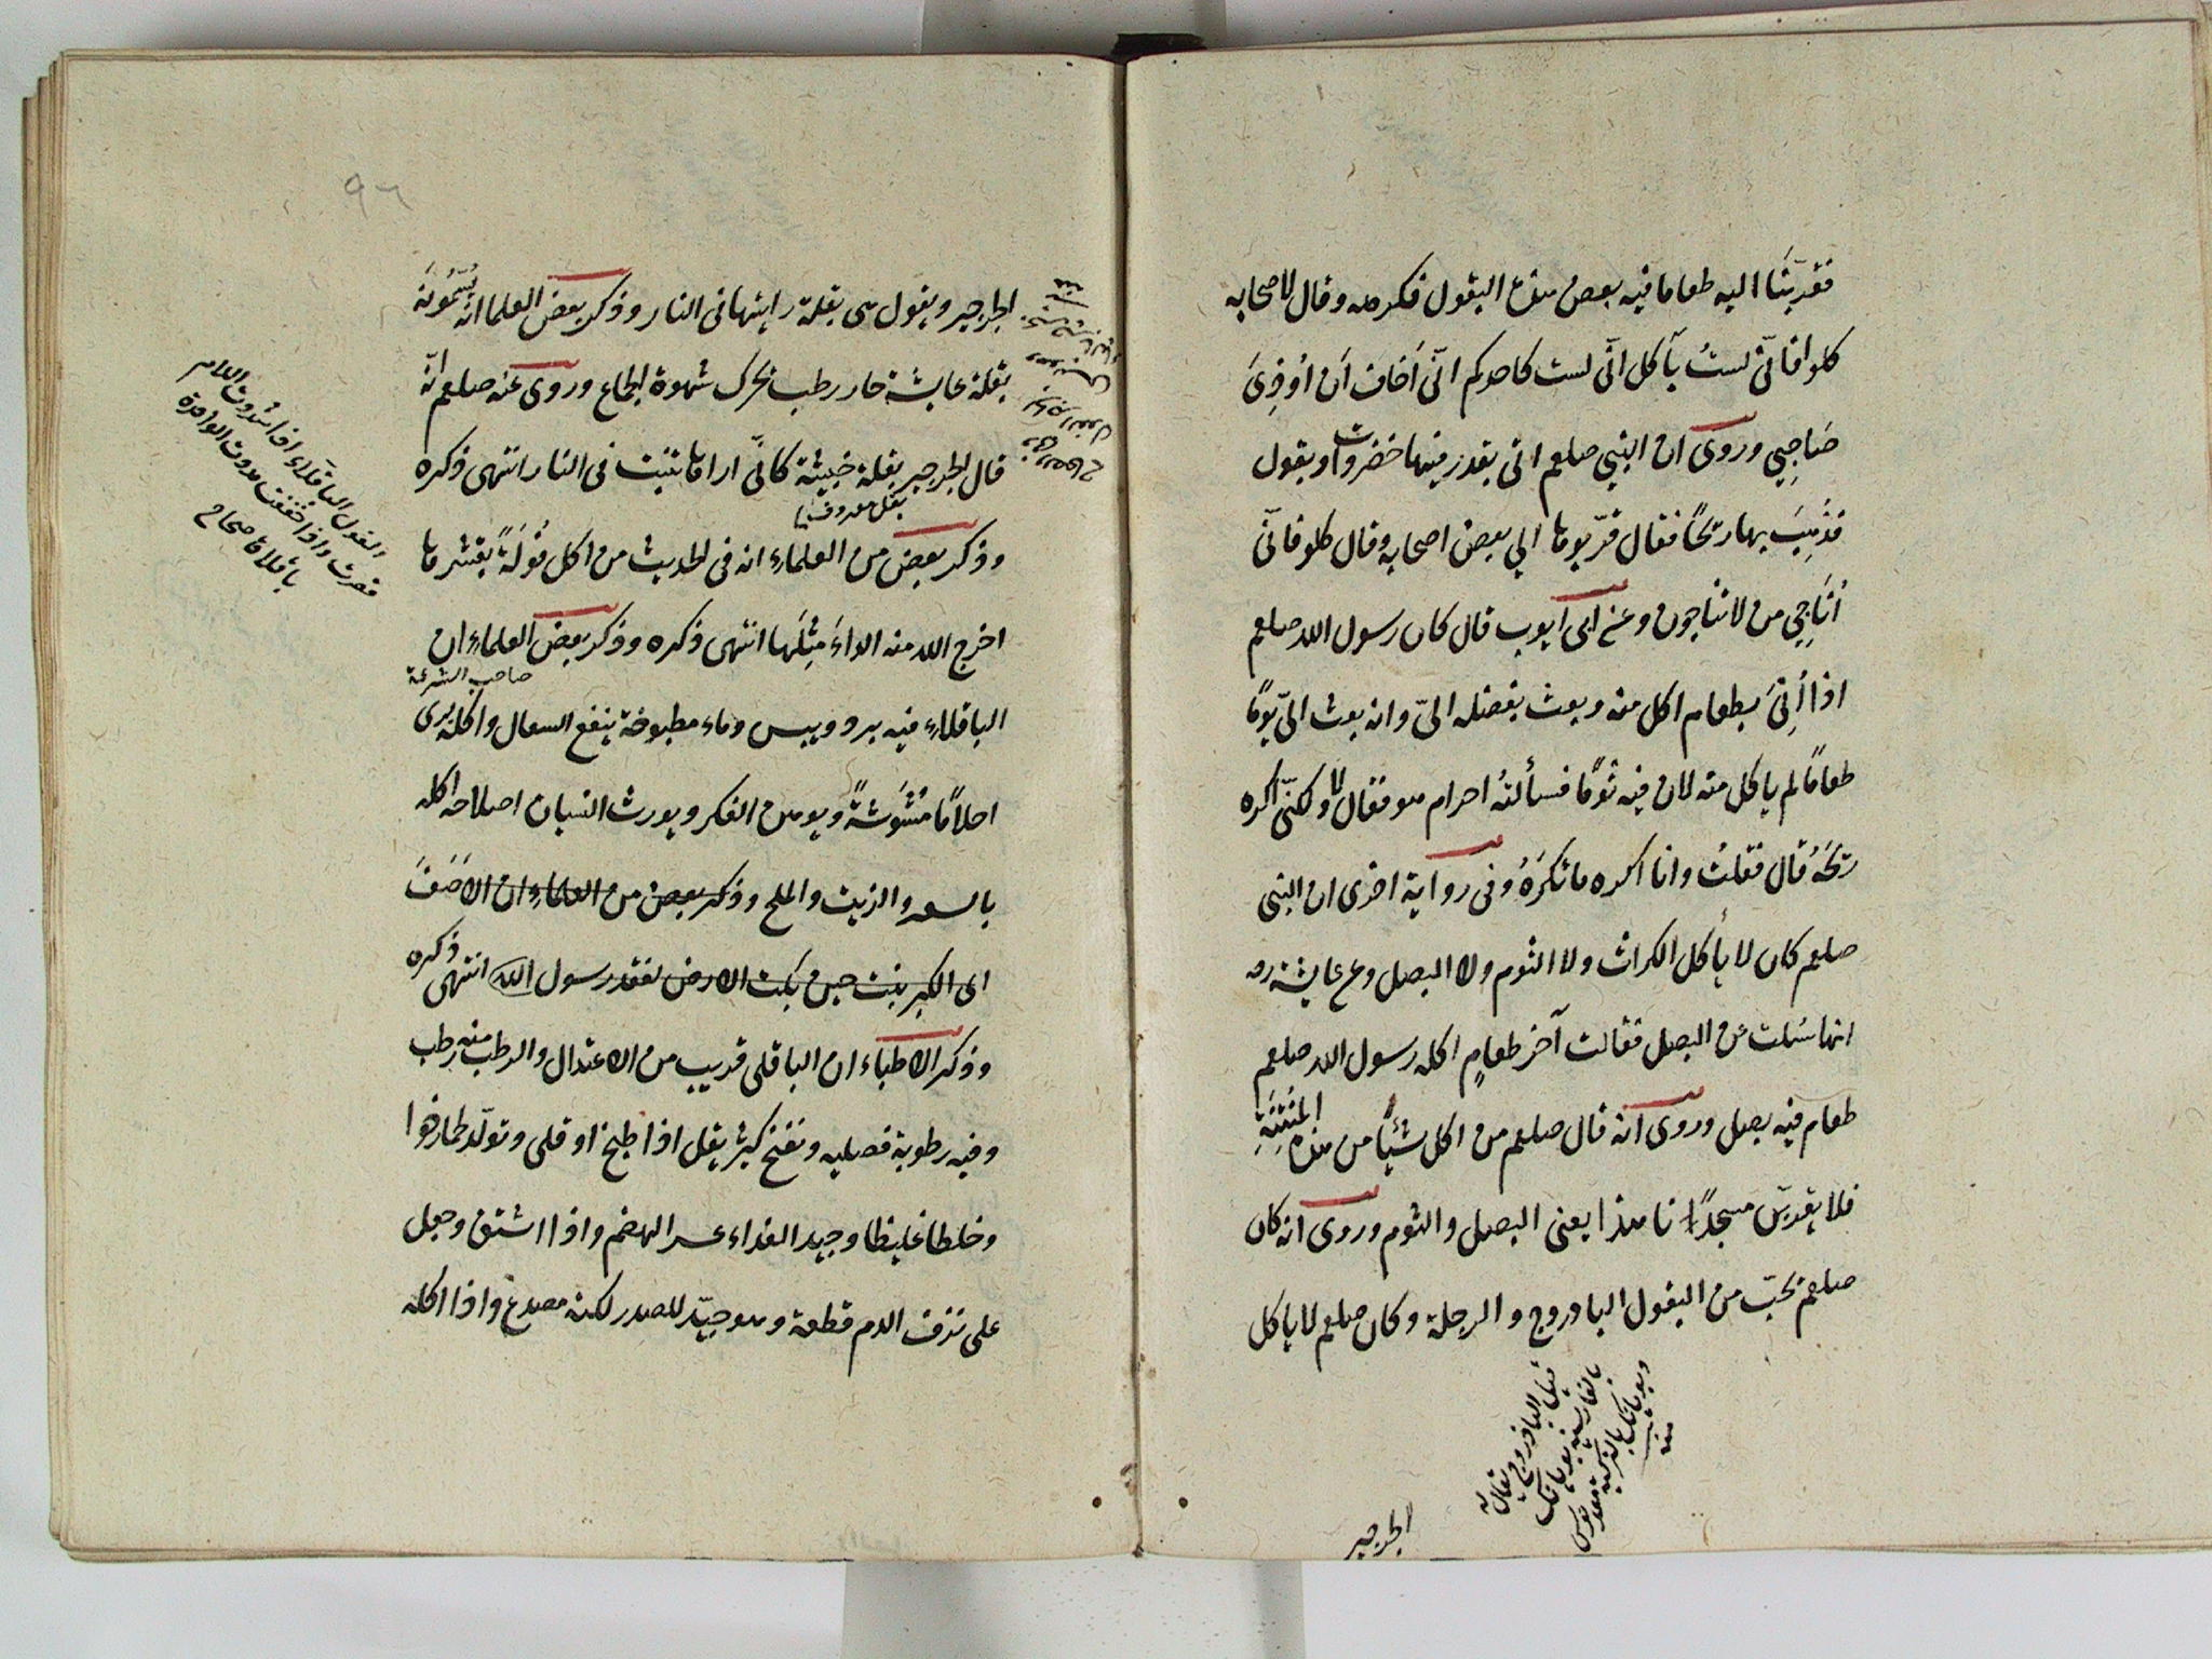 فقربنا اليه طعاما فيه بعض هذه البقول فكرهه وقال لاصحابه
كلوا فانّى لستُ بآكل انّى لست كاحدكم انّى اَخاف اَن اُوذِىَ
صَاحِبي وروى ان النبي صلعم اتى بقدر فيها خضروات ويقول
فوُجِدَ بها ريحًا فقال قرّبوها الي بعض اصحابه وقال كلو فانّى
اُنَاجِي من لا تناجون وعن ابى ايوب قال كان رسول الله صلعم
اذا اُتِىَ بطعام اكل منه وبعث بفضله الىّ وانه بعث الىّ يومًا
طعامًا لم ياكل منه لان فيه ثومًا فسألتهُ احرام هو فقال لا ولكنّى اكره
ريحَهُ قال فقلتُ وانا اكره ما تكرَهُ وفى رواية اخرى ان النبى
صلعم كان لا يأكل الكراث ولا الثوم ولا البصل وعن عايشة رضـ
انها سُئلت عن البصل فقالت آخر طعامٍ اكله رسول الله صلعم
طعام فيه بصل وروى انه قال صلعم من اكل شيئًا من هذه المُنْتِنَةِ
فلا يقربنّ مسجدنا هذا يعنى البصل والثوم وروى انه كان
صلعم يحبّ من البقول البادروج والرجلة وكان صلعم لا ياكل
قيل الباذروج يقال له
بالفارسية
بالتركية
منه
الجرجير
٩٦
الجرجير ويقول هى بقلة رايتها فى النار وذكر بعض العلما انه يُسَمُّونَهُ
بقلة عايشة حار رطب يحرك شهوة الجماع وروى عنه صلعم انّه
قال الجرجير بقلة خبيثة كانّى اراها تنبت فى النار انتهى ذكره
بقل معروف
وذكر بعض من العلماء انه فى الحديث من اكل فُولَةً بقشرها
اخرج الله منه الداءَ مِثلَها انتهى ذكره وذكر بعض العلماء ان
صاحب الشرعة
الباقلاء فيه برد ويبس وماء مطبوخة ينفع السعال واكله يرى
احلامًا مُشَوَشةً ويوهن الفكر ويورث النسيان اصلاحه اكله
بالسعد والزيت والملح وذكر بعض من العلماء ان الاَصَفَ
اى الكبر ينبت حين بكت الارض لفقد رسول الله انتهى ذكره
وذكر الاطباء ان الباقلى قريب من الاعتدال والرطب منه رطب
وفيه رطوبة فضليه ونفخ كثير يقل اذا طبخ او قلى وتولّد لحما رخوا
وخلطا غليظا وجيد الغداء عسر الهضم واذا اشتق وجعل
على نزف الدم قطعه وهو جيّد للصدر لكنه مصدع واذا اكله
الفول الباقلاء اذا شددت اللام
قصرت واذا خففت مددت الواحدة
باقلاة صحاح